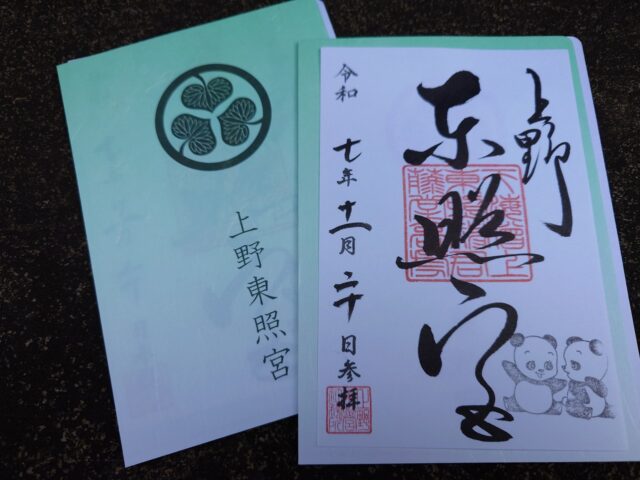 上野東照宮
上野
东照宮
令和
七年十一月二十日参拝